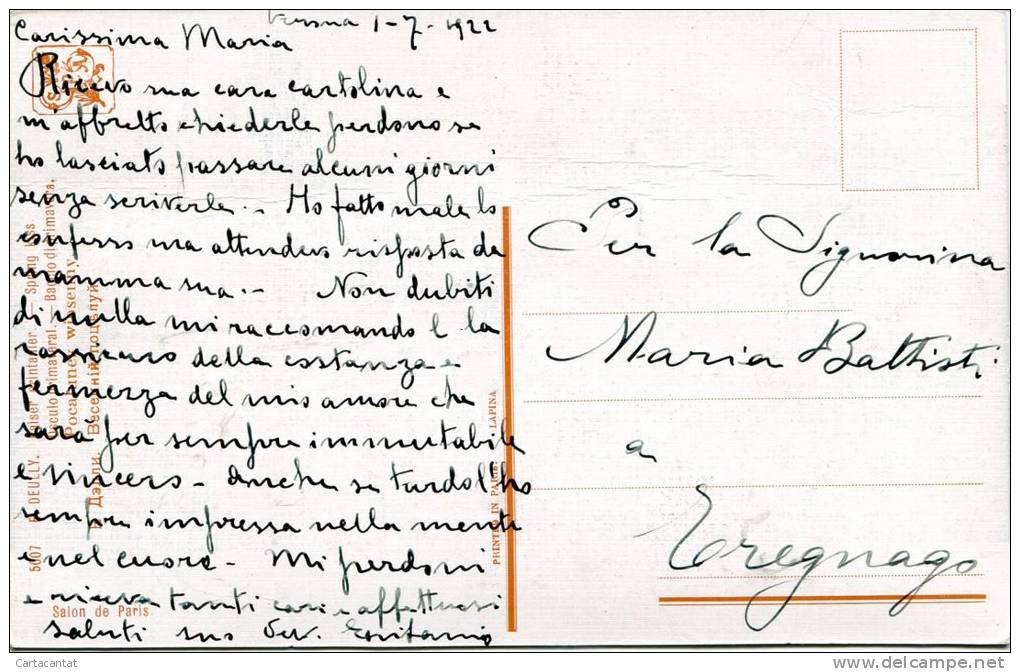 Verona 1-7-1922
Carissima Maria
Ricevo sua cara cartolina e
m'affretto chiederle perdono se
ho lasciato passare alcuni giorni
senza scriverle.- Ho fatto male lo
confesso ma attendevo risposta da
mamma sua.- Non dubiti
di nulla mi raccomando E la
rassicuro della costanza e
fermezza del mio amore che
sarà per sempre immutabile
e sincero- Anche se tardo l'ho
sempre impressa nella mente
e nel cuore- Mi perdoni
e riceva tanti cari e affettuosi
saluti suo
Per la Signorina
Maria Battisti
a
Tregnago
5007 DEULLY. Baiser printannier. Spring kiss
Osculo primaveral. — Bacio di primavera.
Pocałunek wiosenny
Дэлли. Весенній поцелуй
Salon de Paris
PRINTED IN PARIS LAPINA
Cartacantat
www.delcampe.net